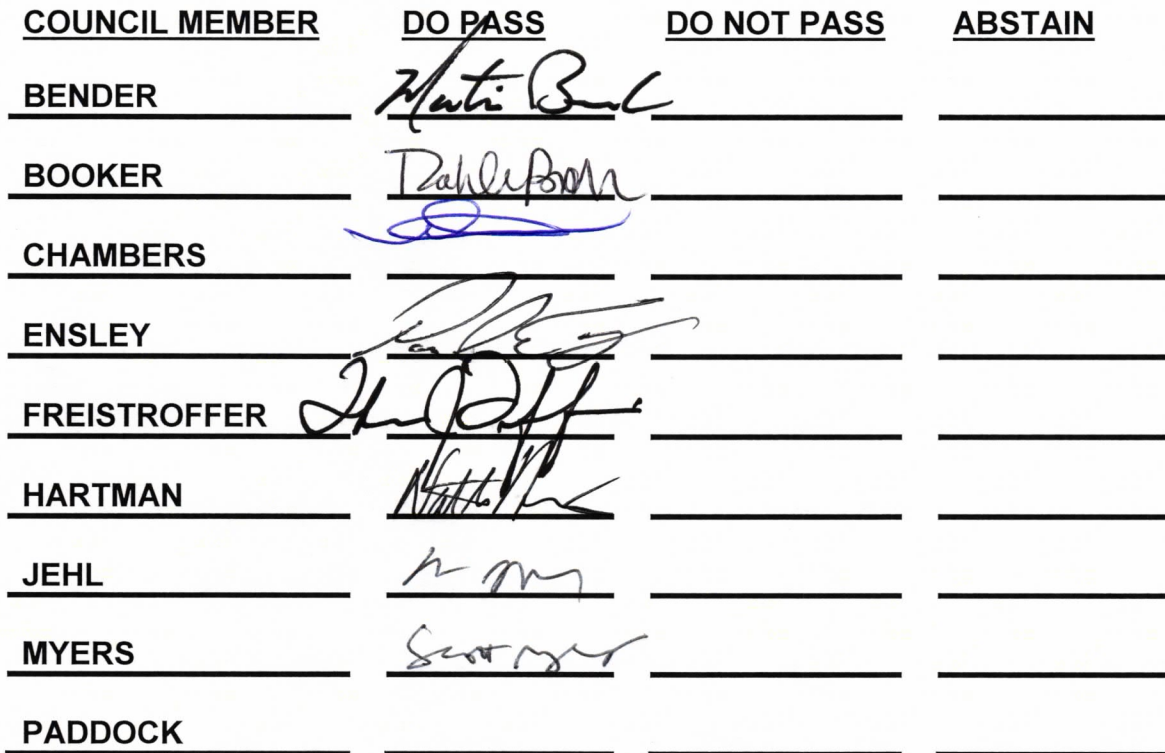 COUNCIL MEMBER DO PASS DO NOT PASS ABSTAIN
BENDER Martin
BOOKER
CHAMBERS
ENSLEY
FREISTROFFER
HARTMAN
JEHL
MYERS Scott Myers
PADDOCK